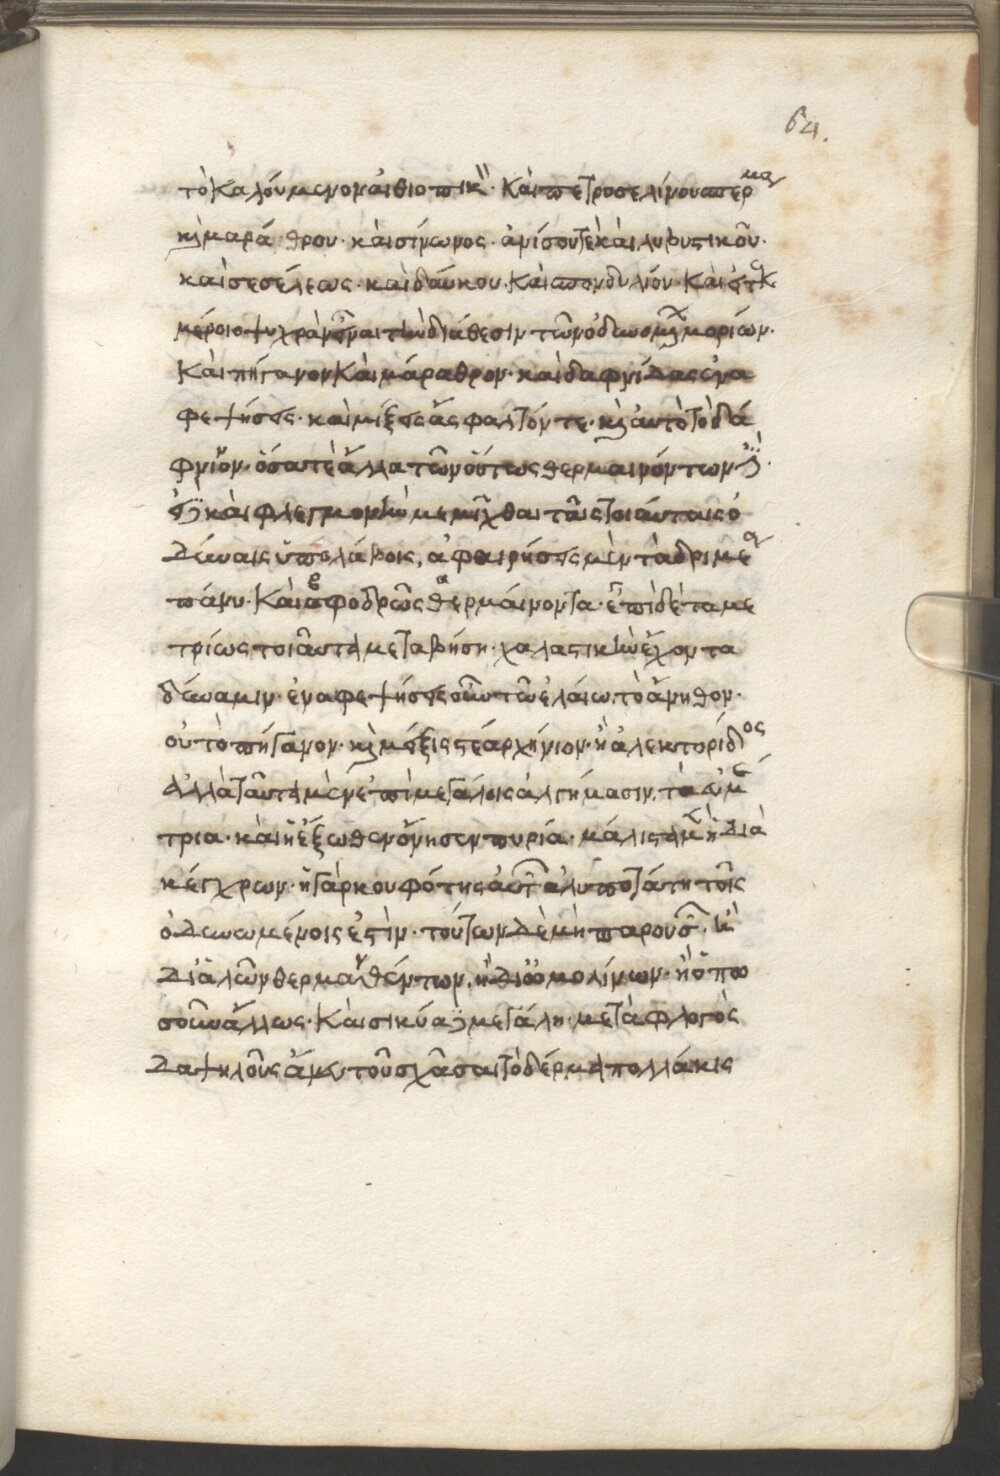 64.
τὸ καλούμενον αἰθιοπικὸν· καὶ πετροσελίνου σπέρμα
καὶ μαράθρου· καὶ σίνωνος· ἀνίσου τὲ καὶ λιβυστικοῦ·
καὶ σεσέλεως· καὶ δαύκου· καὶ σπονδυλίου· καὶ
ψυχρὰν εἶναι τὴν διάθεσιν τῶν ὀδυνωμένων μορίων·
καὶ πήγανον καὶ μάραθρον· καὶ δαφνίδας ἐνα
φεψήσεις· καὶ μίξεις ἄσφαλτόν τε· καὶ αὐτὸ τὸ δά
φνινον· ὅσα τὲ ἄλλα τῶν οὕτως θερμαινόντων ἐστὶ·
εἰ δὲ καὶ φλεγμονὴν μεμίχθαι ταῖς τοιαύταις ὀ
δύναις ὑπολάβοις, ἀφαιρήσεις μὲν τὰ δριμέα
πάνυ· καὶ σφοδρῶς θερμαίνοντα· ἐπὶ δὲ τὰ με
τρίως τοιαῦτα μεταβήσῃ· χαλαστικὴν ἔχοντα
δύναμιν· ἐναφεψήσεις οὖν τῶ ἐλαίω· τὸ ἄνηθον·
οὐ τὸ πήγανον· καὶ μίξεις στέαρ χήνιον· ἢ ἀλεκτορίδος
ἀλλὰ ταῦτα μὲν ἐπὶ μεγάλοις ἀλγήμασιν· τὰ δὲ μέ
τρια· καὶ ἡ ἔξωθεν ὄνησεν πυρία· μάλιστα μὲν ἡ διὰ
κέγχρων· ἡ γὰρ κουφότης αὐτῶν ἀλυποτάτη τοῖς
ὀδυνωμένοις ἐστίν· τούτων δὲ μὴ παρουσῶν· ἢ
δι' ἁλῶν θερμανθέντων, ἢ δι' ὠμολίνων· ἢ ὅπω
σοῦν ἄλλως· καὶ σικύα δὲ μεγάλη· μετὰ φλογὸς
δαψιλοῦς ἄμευ τοῦ σχάσαι τὸ δέρμα πολλάκις